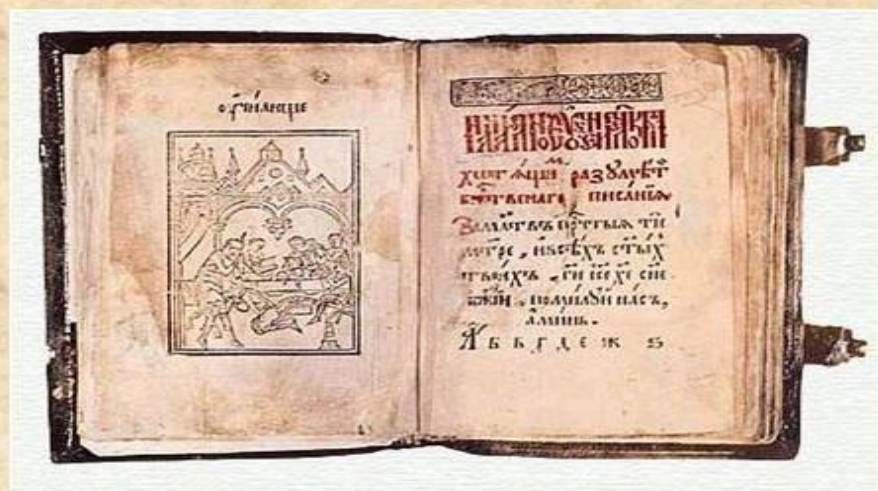 ѹчилище
хотѧщим разумѣти
бж҃твенаго писанїѧ
За млт҃въ прⷱ҇тыѧ ти
матре, и всѣхъ ст҃ых
твоихъ, гⷭ҇и іс҃е хе҃ сн҃е
бжїи, помилуи насъ,
аминь.
А Б В Г Д Е Ж Ѕ